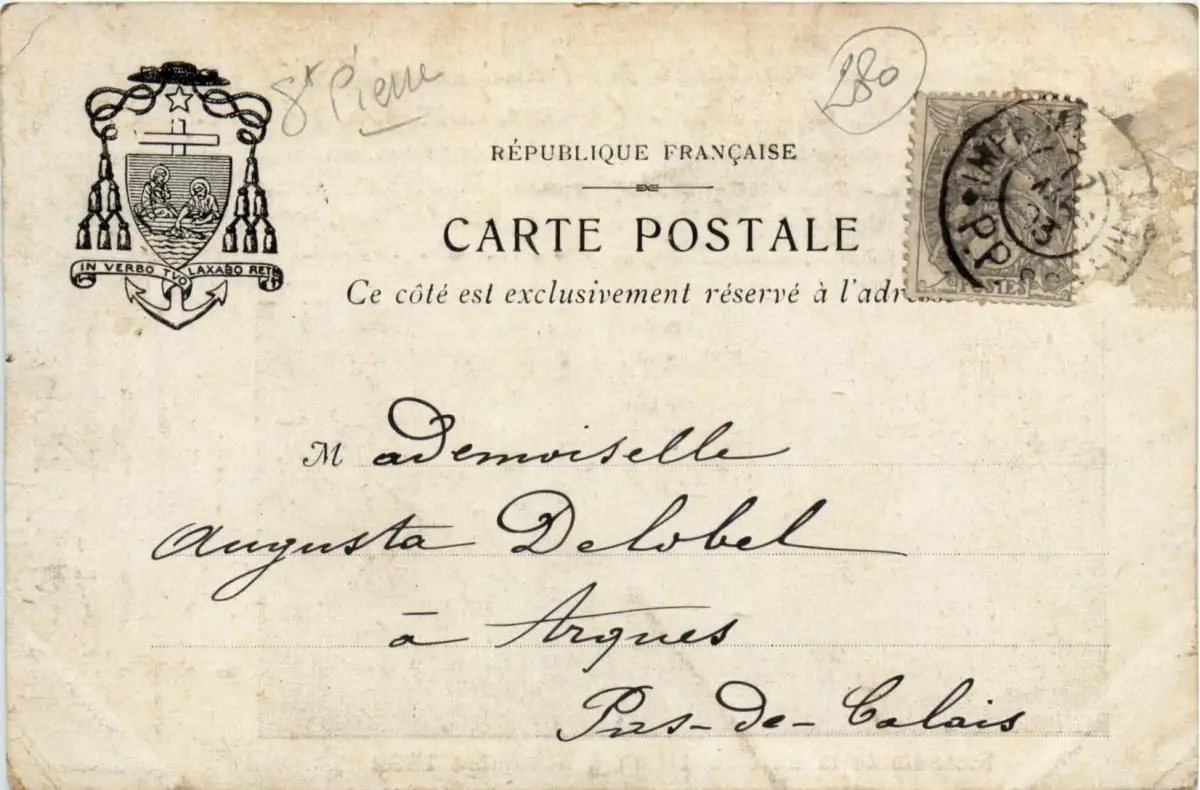 St Pierre
280
RÉPUBLIQUE FRANÇAISE
CARTE POSTALE
Ce côté est exclusivement réservé à l'adresse
IN VERBO TVO LAXABO RETE
IMP
P.P.
POSTES
Mademoiselle
Augusta Delobel
à Arques
Pas-de-Calais